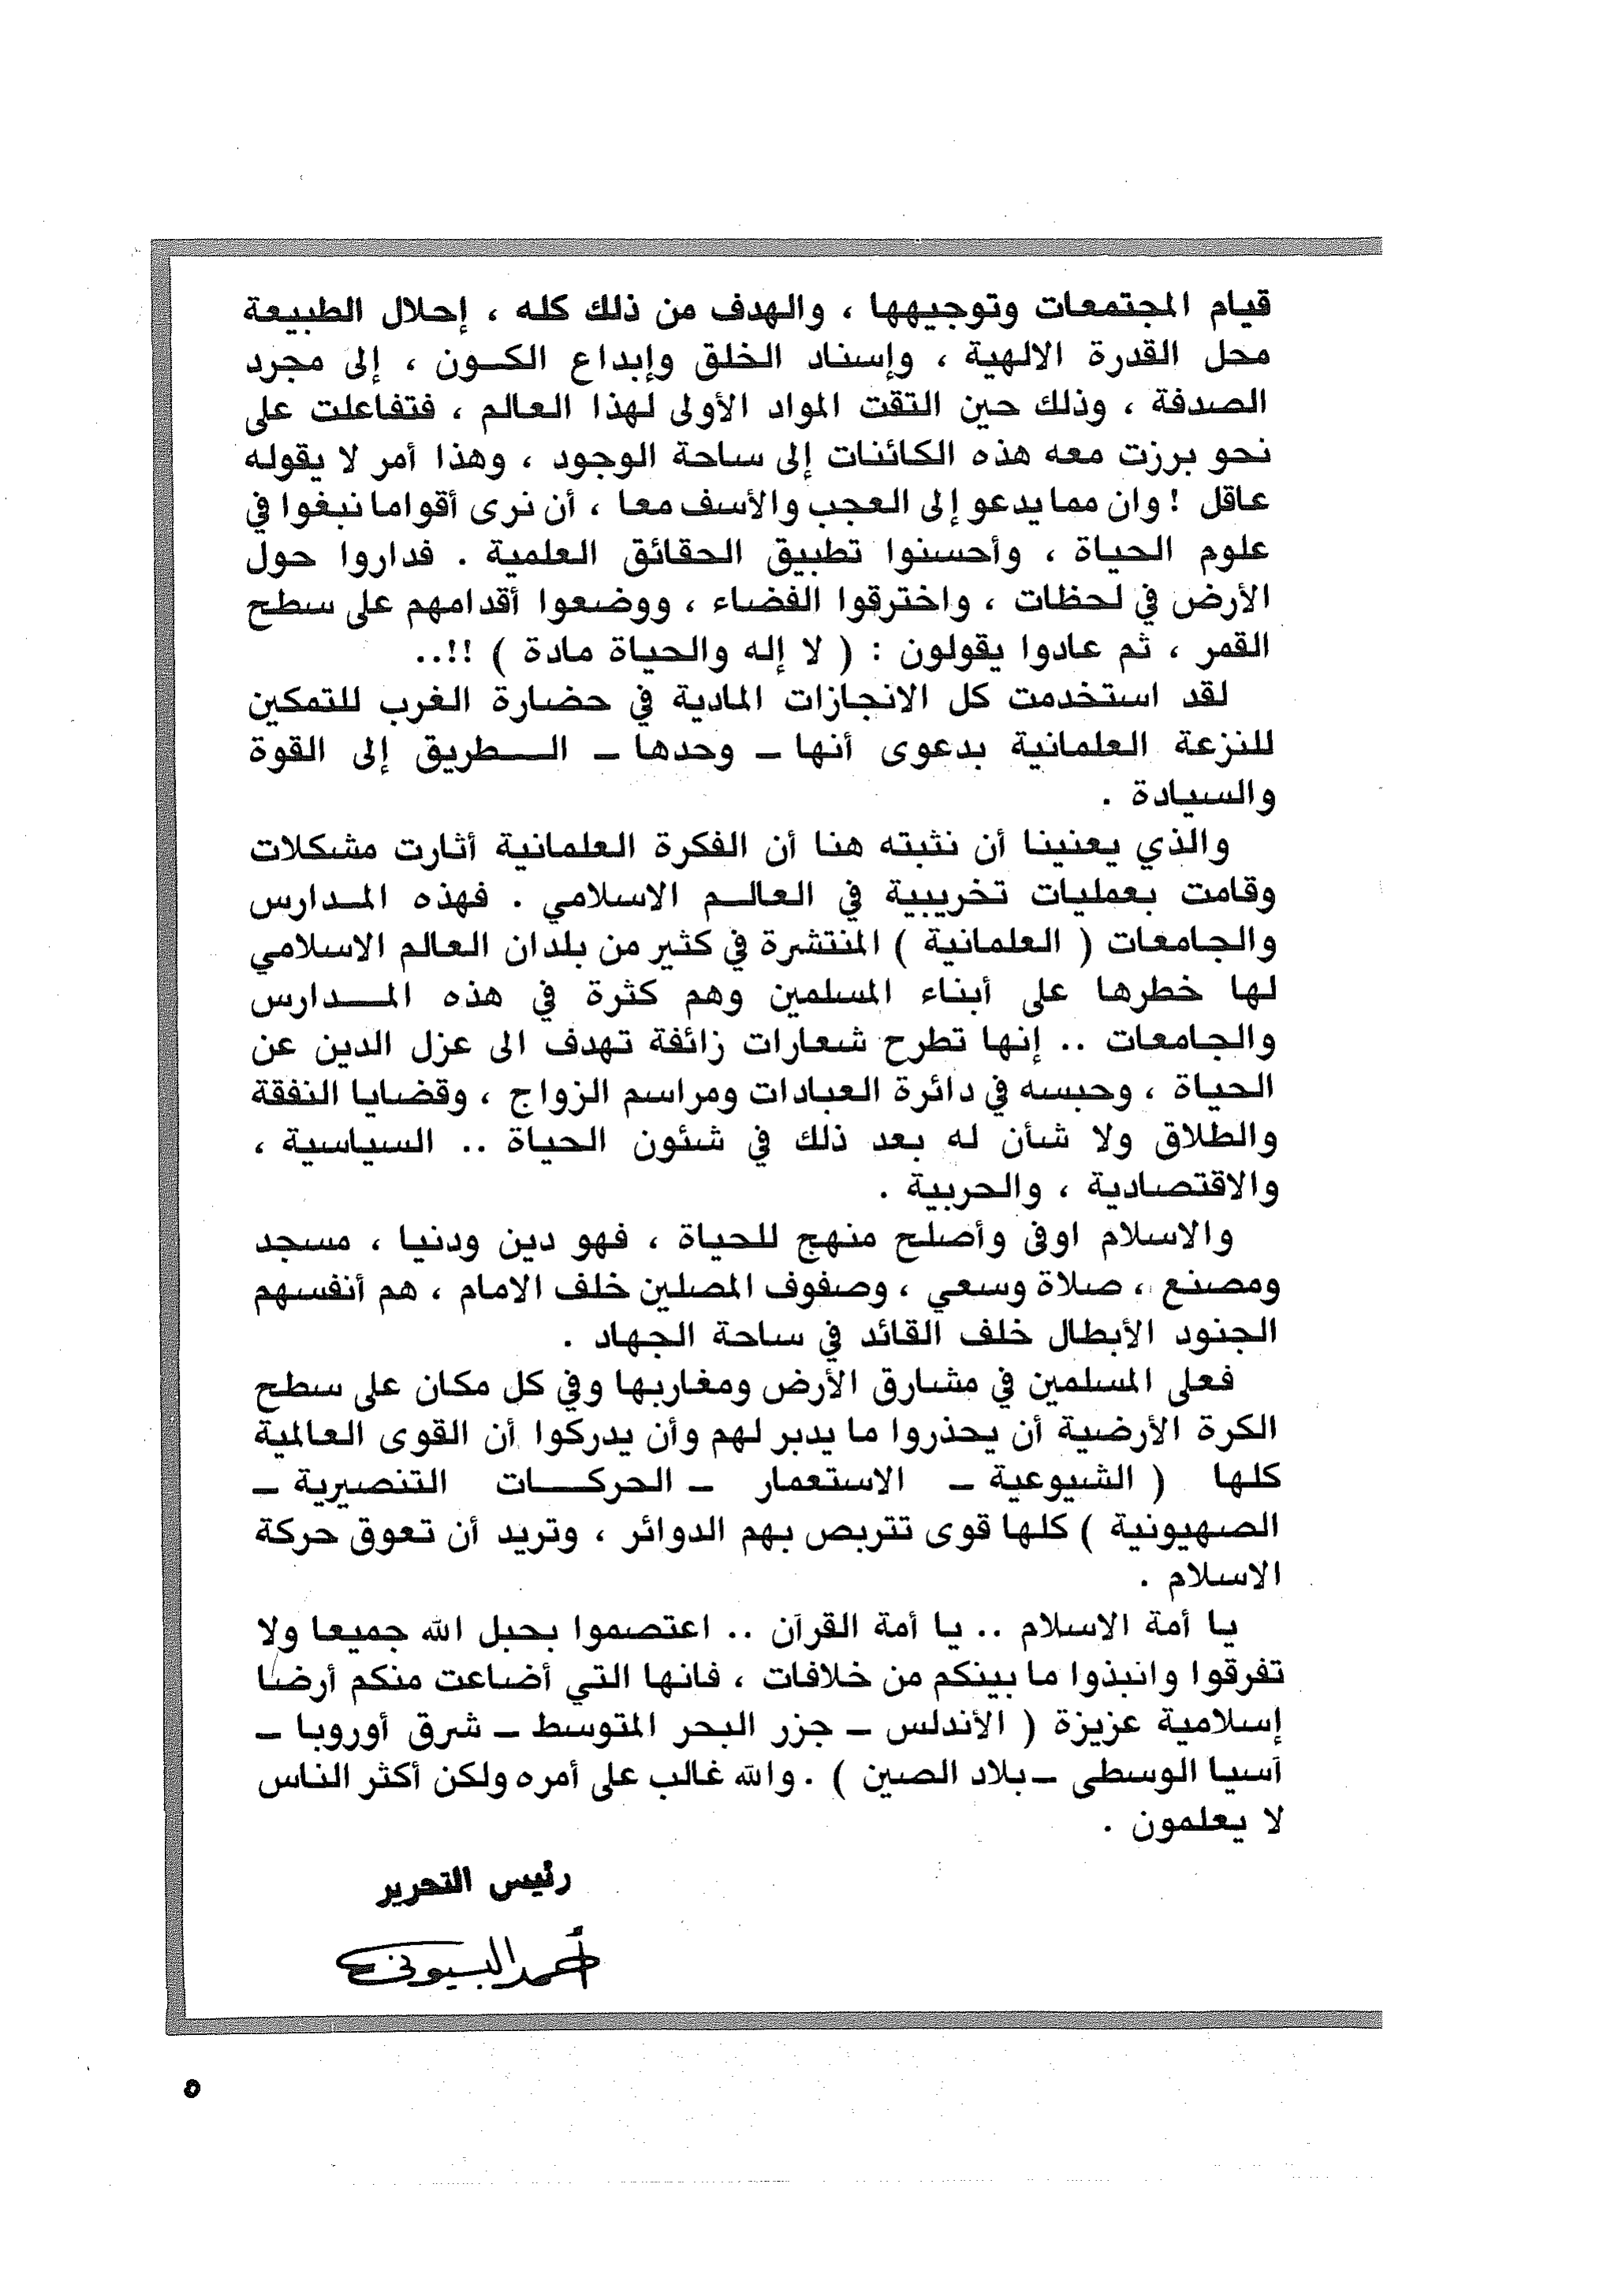 قيام المجتمعات وتوجيهها ، والهدف من ذلك كله ، إحلال الطبيعة
محل القدرة الالهية ، وإسناد الخلق وإبداع الكون ، إلى مجرد
الصدفة ، وذلك حين التقت المواد الأولى لهذا العالم ، فتفاعلت على
نحو برزت معه هذه الكائنات إلى ساحة الوجود ، وهذا أمر لا يقوله
عاقل ! وان مما يدعو إلى العجب والأسف معا ، أن نرى أقواما نبغوا في
علوم الحياة ، وأحسنوا تطبيق الحقائق العلمية . فداروا حول
الأرض في لحظات ، واخترقوا الفضاء ، ووضعوا أقدامهم على سطح
القمر ، ثم عادوا يقولون : ( لا إله والحياة مادة ) !!..
لقد استخدمت كل الانجازات المادية في حضارة الغرب للتمكين
للنزعة العلمانية بدعوى أنها ـ وحدها ـ الطريق إلى القوة
والسيادة .
والذي يعنينا أن نثبته هنا أن الفكرة العلمانية أثارت مشكلات
وقامت بعمليات تخريبية في العالم الاسلامي . فهذه المدارس
والجامعات ( العلمانية ) المنتشرة في كثير من بلدان العالم الاسلامي
لها خطرها على أبناء المسلمين وهم كثرة في هذه المدارس
والجامعات .. إنها تطرح شعارات زائفة تهدف الى عزل الدين عن
الحياة ، وحبسه في دائرة العبادات ومراسم الزواج ، وقضايا النفقة
والطلاق ولا شأن له بعد ذلك في شئون الحياة .. السياسية ،
والاقتصادية ، والحربية .
والاسلام اوفى وأصلح منهج للحياة ، فهو دين ودنيا ، مسجد
ومصنع ، صلاة وسعي ، وصفوف المصلين خلف الامام ، هم أنفسهم
الجنود الأبطال خلف القائد في ساحة الجهاد .
فعلى المسلمين في مشارق الأرض ومغاربها وفي كل مكان على سطح
الكرة الأرضية أن يحذروا ما يدبر لهم وأن يدركوا أن القوى العالمية
كلها ( الشيوعية ـ الاستعمار ـ الحركات التنصيرية ـ
الصهيونية ) كلها قوى تتربص بهم الدوائر ، وتريد أن تعوق حركة
الاسلام .
يا أمة الاسلام .. يا أمة القرآن .. اعتصموا بحبل الله جميعا ولا
تفرقوا وانبذوا ما بينكم من خلافات ، فانها التي أضاعت منكم أرضا
إسلامية عزيزة ( الأندلس ـ جزر البحر المتوسط ـ شرق أوروبا ـ
آسيا الوسطى ـ بلاد الصين ) . والله غالب على أمره ولكن أكثر الناس
لا يعلمون .
رئيس التحرير
أحمد البسيوني
٥